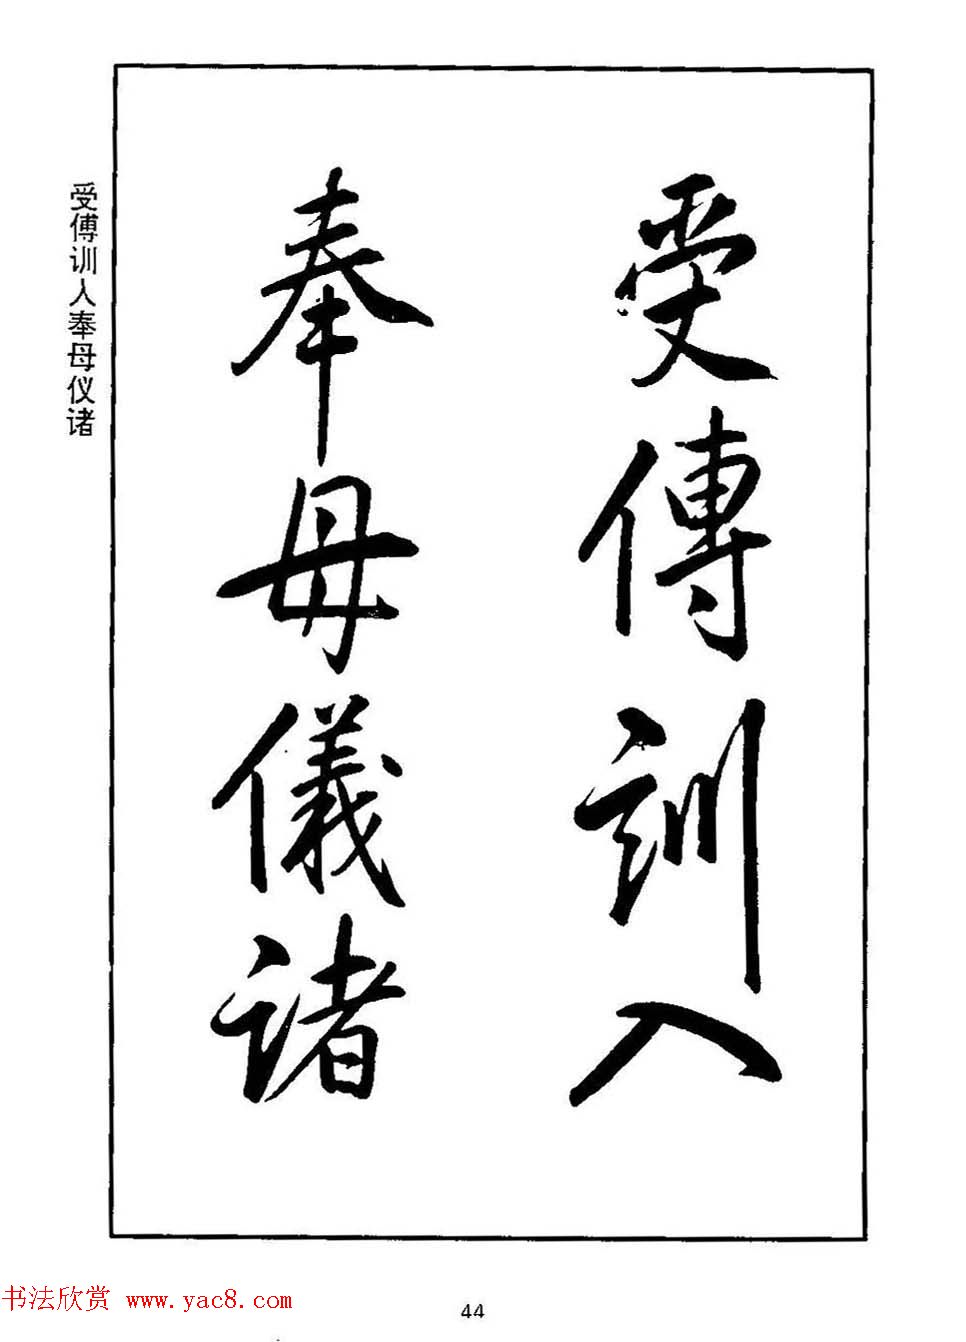 受傅訓入
奉母儀諸
受傅训人奉母仪诸
书法欣赏 www.yac8.com
44